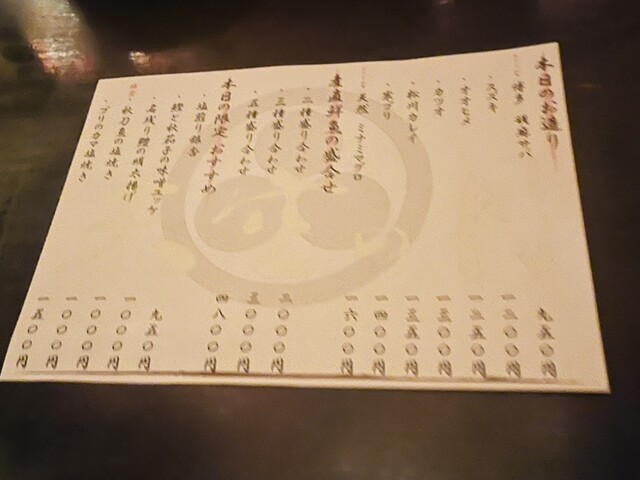 本日のお造り
博多
九五〇円
・スズキ
一二〇〇円
・オオヒメ
一三五〇円
・カツオ
一三〇〇円
・松川カレイ
一三五〇円
・寒ブリ
一四〇〇円
天然 ミナミマグロ
一六〇〇円
産直鮮魚の盛合せ
・二種盛り合わせ
二〇〇〇円
・三種盛り合わせ
三五〇〇円
・五種盛り合わせ
四八〇〇円
本日の限定おすすめ
・塩煎り銀杏
九五〇円
・鰹と秋茄子の味噌ユッケ
一〇〇〇円
・名残り鱧の明太揚げ
一〇〇〇円
・秋刀魚の塩焼き
一〇〇〇円
・ブリのカマ塩焼き
一五〇〇円